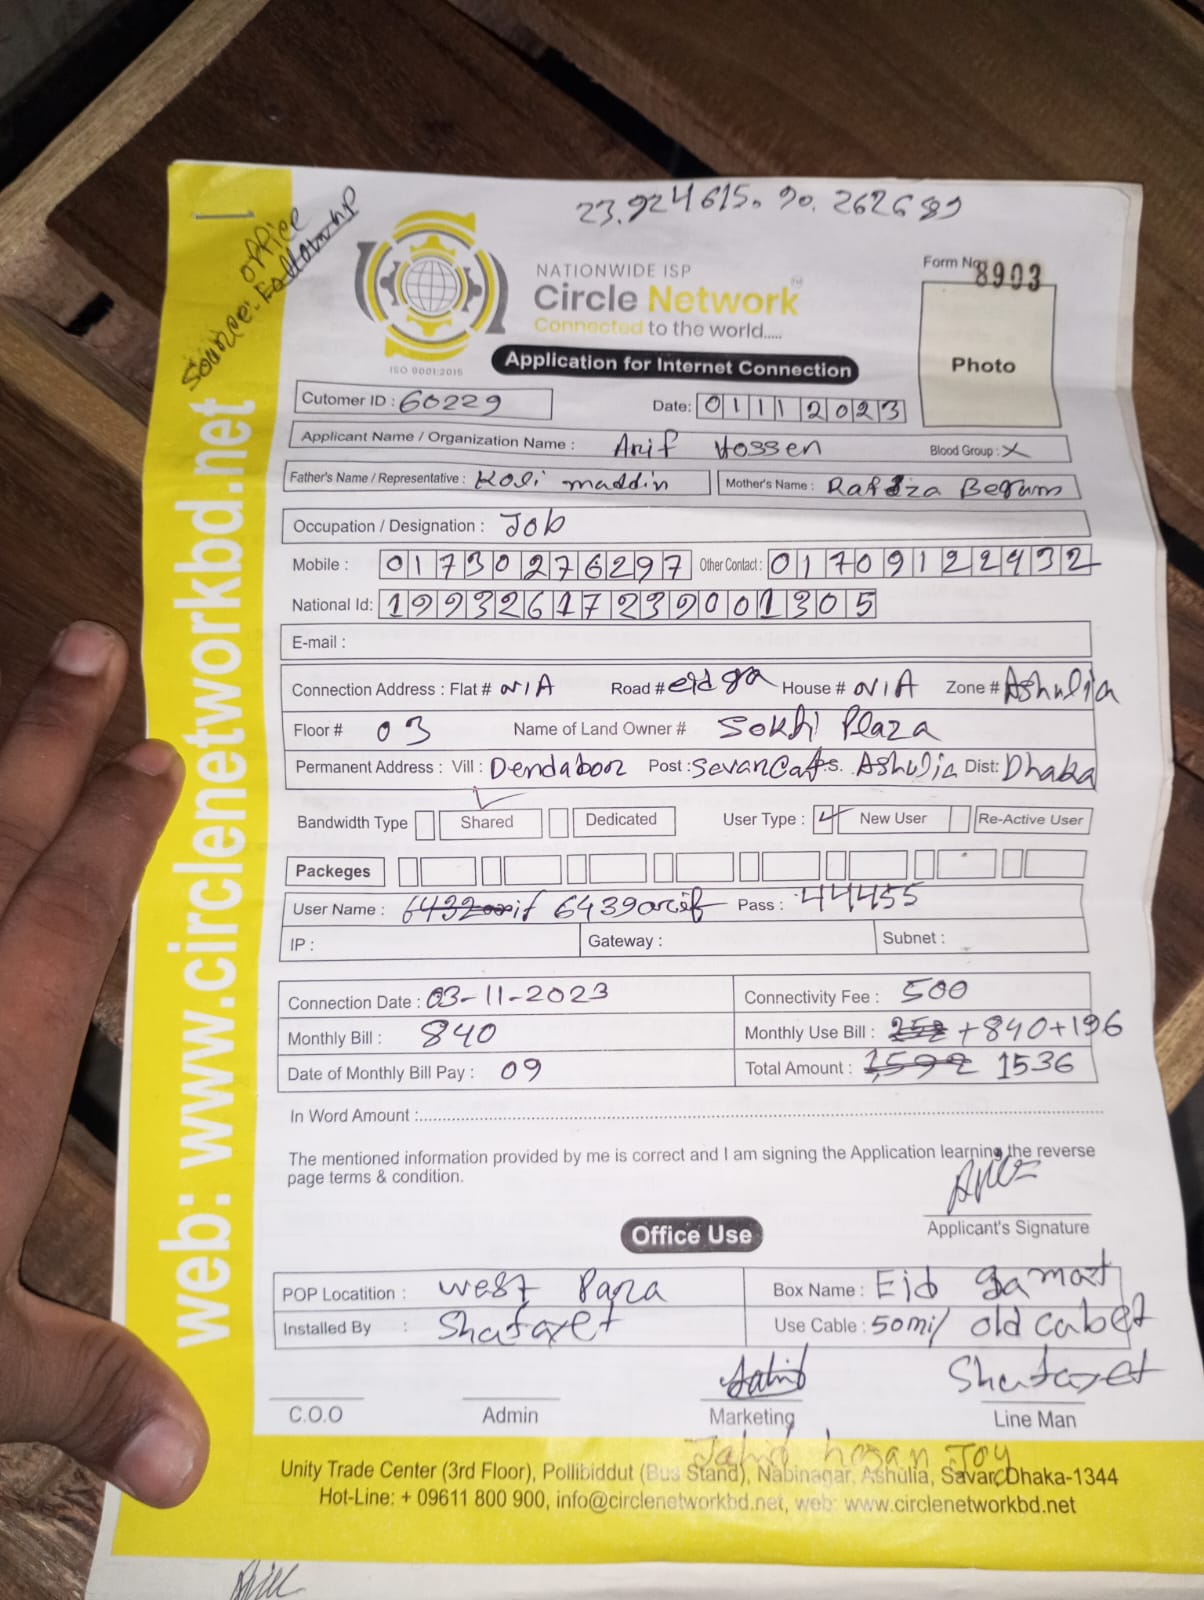 23.924615. 90.262689
Source: Followup
office
NATIONWIDE ISP
Circle Network™
Connected to the world.....
ISO 9001:2015
Application for Internet Connection
Form No 8903
Photo
Cutomer ID : 60229
Date: 01112023
Applicant Name / Organization Name : Arif Hossen Blood Group : X
Father's Name / Representative : Koli maddin Mother's Name : Rafiza Begum
Occupation / Designation : Job
Mobile : 01730276297 Other Contact : 01709122432
National Id: 19932617239001305
E-mail :
Connection Address : Flat # N/A Road # eid ga House # N/A Zone # Ashulia
Floor # 03 Name of Land Owner # Sokhi Plaza
Permanent Address : Vill : Dendabor Post : P.S. Ashulia Dist: Dhaka
Bandwidth Type Shared Dedicated User Type : New User Re-Active User
Packeges
User Name : 6432arif 6439arif Pass : 44455
IP : Gateway : Subnet :
Connection Date : 03-11-2023 Connectivity Fee : 500
Monthly Bill : 840 Monthly Use Bill : 252 +840+196
Date of Monthly Bill Pay : 09 Total Amount : 1,592 1536
In Word Amount :
The mentioned information provided by me is correct and I am signing the Application learning the reverse
page terms & condition.
Applicant's Signature
Office Use
POP Locatition : West Para Box Name : Eid ga mart
Installed By : Shafayet Use Cable : 50mi/ old cabel
Shafayet
C.O.O Admin Marketing Line Man
Jahid hasan Joy
Unity Trade Center (3rd Floor), Pollibiddut (Bus Stand), Nabinagar, Ashulia, Savar, Dhaka-1344
Hot-Line: + 09611 800 900, info@circlenetworkbd.net, web: www.circlenetworkbd.net
web: www.circlenetworkbd.net